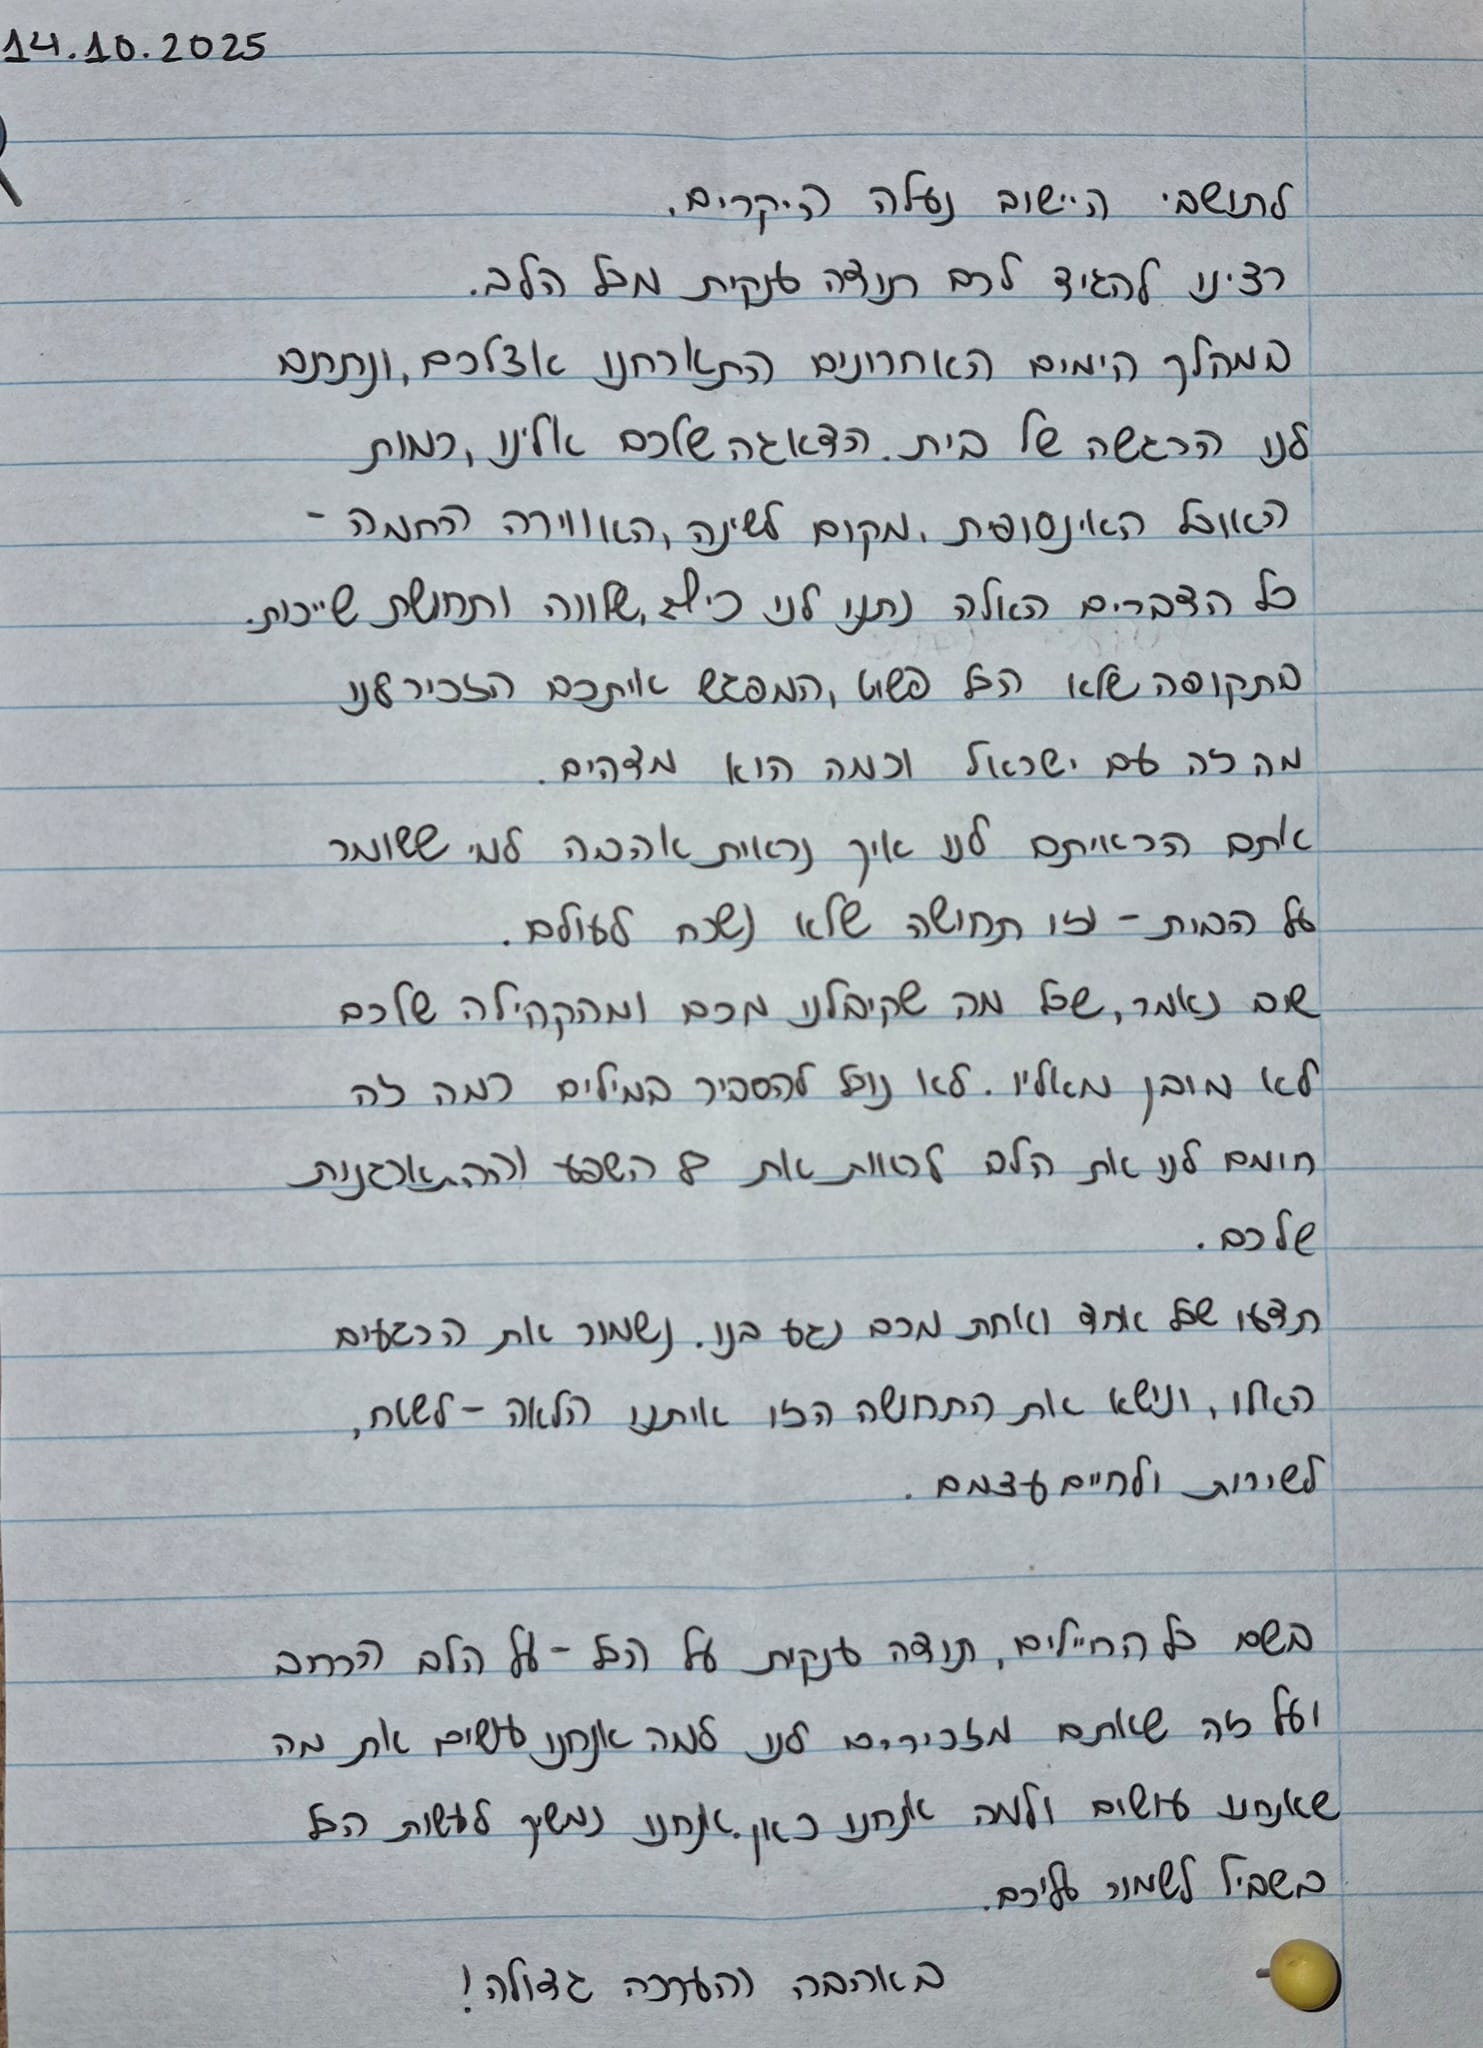 14.10.2025
לתושבי היישוב נעלה היקרים.
רצינו להגיד לכם תודה ענקית מכל הלב.
במהלך הימים האחרונים התארחנו אצלכם, ונתתם
לנו הרגשה של בית. הדאגה שלכם אלינו, כמות
האוכל האינסופית, מקום לשינה, האווירה החמה -
כל הדברים האלה נתנו לנו שלווה ותחושת שייכות.
בתקופה שלא הכל פשוט, המפגש איתכם הזכיר לנו
מה זה עם ישראל וכמה הוא מדהים.
אתם הראיתם לנו איך נראית אהבה למי ששומר
על הבית - וזו תחושה שלא נשכח לעולם.
שוב נאמר, שכל מה שקיבלנו מכם ומהקהילה שלכם
לא מובן מאליו. לא נוכל להסביר במילים כמה זה
חימם לנו את הלב לראות את השפע וההתארגנות
שלכם.
תדעו שכל אחד ואחת מכם נגע בנו. נשמור את הרגעים
האלו, ונישא את התחושה הזו איתנו הלאה - לשטח,
לשירות ולחיים עצמם.
בשם כל החיילים, תודה ענקית על הכל - על הלב הרחב
ועל זה שאתם מזכירים לנו למה אנחנו עושים את מה
שאנחנו עושים ולמה אנחנו כאן. אנחנו נמשיך לעשות הכל
בשביל לשמור עליכם.
באהבה והערכה גדולה!